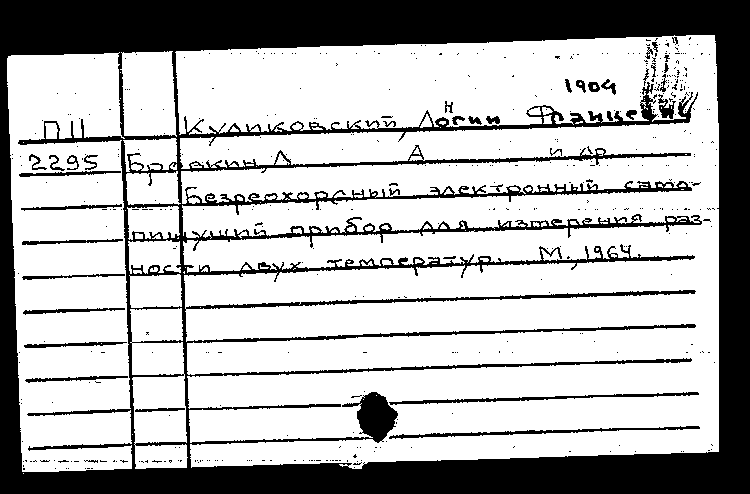 1904
П11 Куликовский, Лонгин Францевич
2295 Бровкин, Л А и др
Безреохордный электронный само-
пишущий прибор для измерения раз-
ности двух температур. М., 1964.